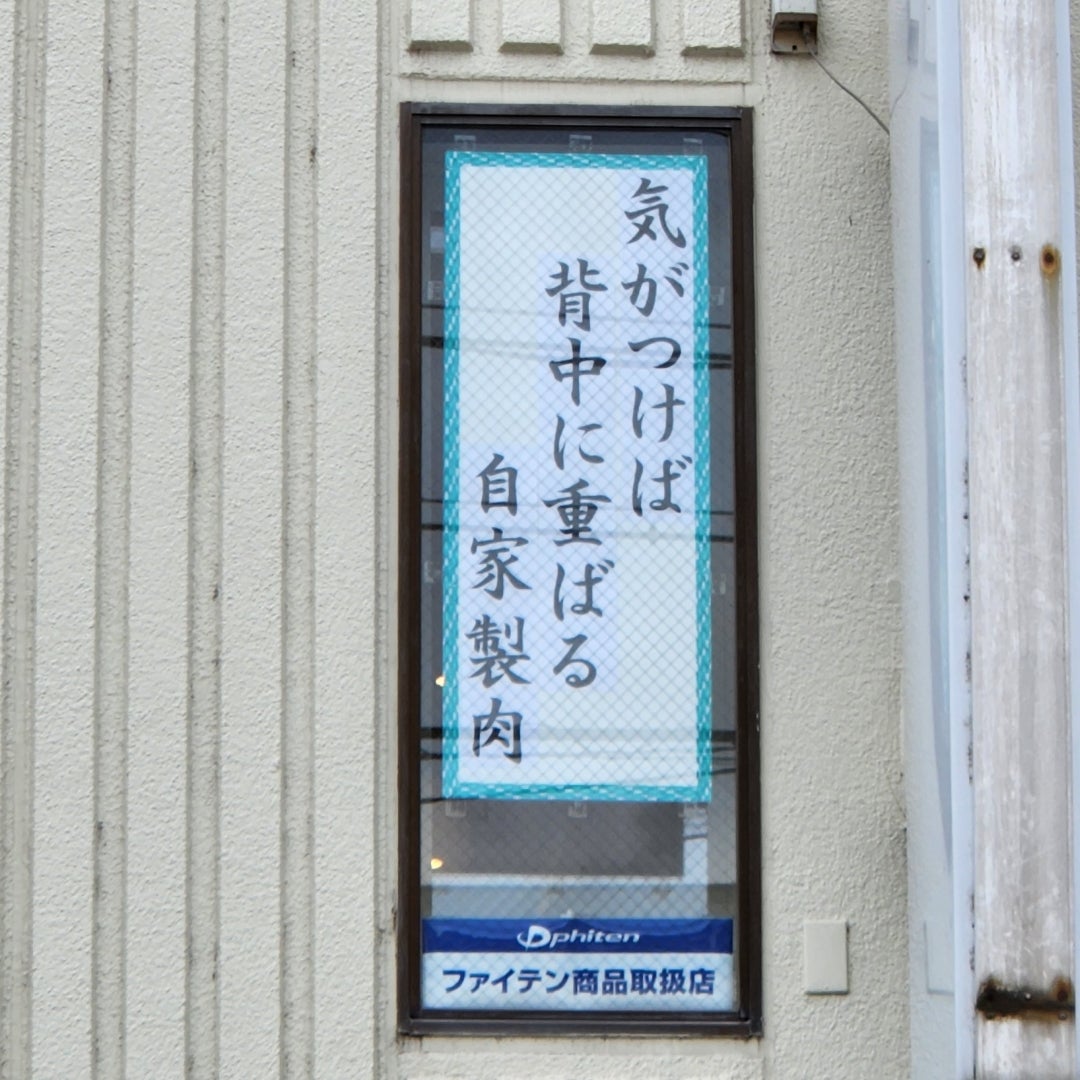 気がつけば
背中に重ばる
自家製肉
phiten
ファイテン商品取扱店